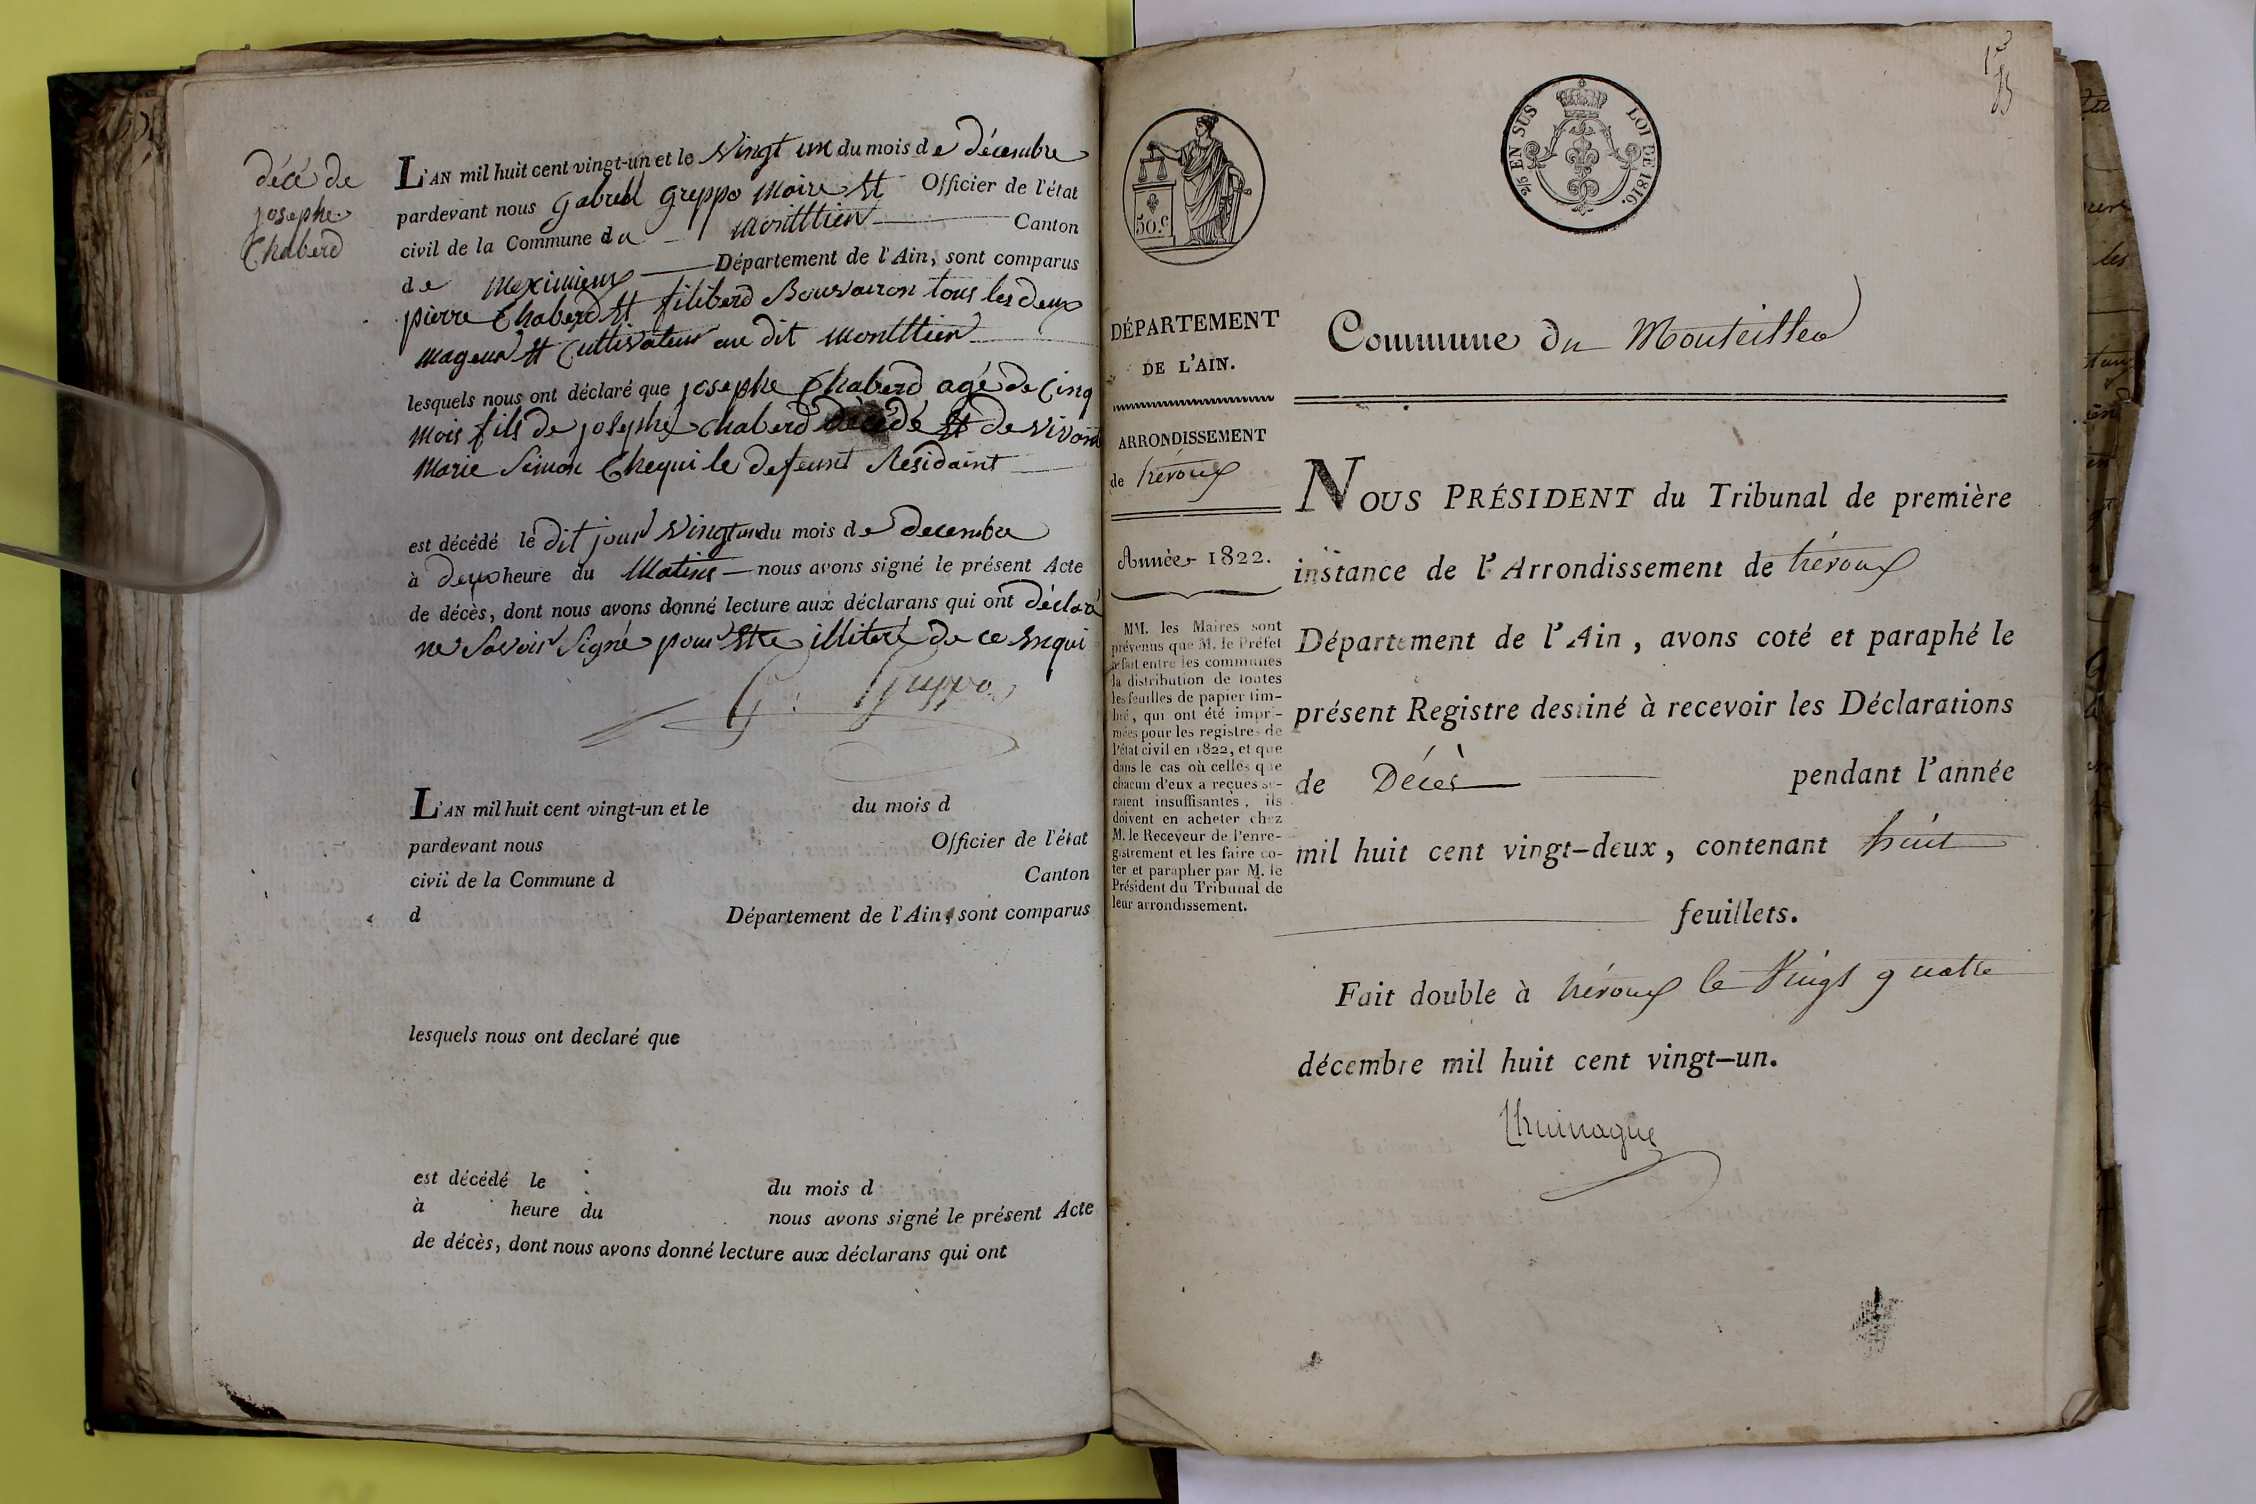 décé de
josephe
Chaberd
L'AN mil huit cent vingt-un et le vingt un du mois de décembre
pardevant nous gabriel greppo Maire et Officier de l'état
civil de la Commune du montltien Canton
de Meximieux Département de l'Ain, sont comparus
pierre Chaberd et filiberd Bouvairon tous les deux
mageur et Cultivateur au dit montltien
lesquels nous ont déclaré que josephe Chaberd agé de Cinq
mois fils de josephe Chaberd décédé et de vivant
Marie Simon Chequi le defeunt Residaint
est décédé le dit jour vingt un du mois de decembre
à deux heure du Matins nous avons signé le présent Acte
de décès, dont nous avons donné lecture aux déclarans qui ont déclaré
ne Savoir Signé pour etre illiteré de ce enqui
Greppo
L'AN mil huit cent vingt-un et le du mois d
pardevant nous Officier de l'état
civil de la Commune d Canton
d Département de l'Ain, sont comparus
lesquels nous ont declaré que
est décédé le du mois d
à heure du nous avons signé le présent Acte
de décès, dont nous avons donné lecture aux déclarans qui ont
50.c
2/5 EN SUS LOI DE 1816.
DÉPARTEMENT
DE L'AIN.
ARRONDISSEMENT
de trévoux
Année 1822.
MM. les Maires sont
prévenus que M. le Préfet
a fait entre les communes
la distribution de toutes
les feuilles de papier tim-
bré, qui ont été impri-
mées pour les registres de
l'état civil en 1822, et que
dans le cas où celles que
chacun d'eux a reçues se-
raient insuffisantes, ils
doivent en acheter chez
M. le Receveur de l'enre-
gistrement et les faire co-
ter et parapher par M. le
Président du Tribunal de
leur arrondissement.
Commune du Monteiller
NOUS PRÉSIDENT du Tribunal de première
instance de l'Arrondissement de trévoux
Département de l'Ain, avons coté et paraphé le
présent Registre destiné à recevoir les Déclarations
de Décès pendant l'année
mil huit cent vingt-deux, contenant huit
feuillets.
Fait double à trévoux le Vingt quatre
décembre mil huit cent vingt-un.